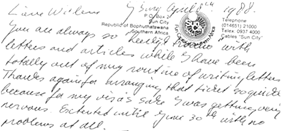 April 1988.
P.O. Box 2
Sun City
Republic of Bophuthatswana
Southern Africa
Telephone
(01465) 21000
Telex 0937 4000
Cables "Sun City"
You are always so with
letters and articles while I have been
totally out of my routine of writing letters
Thanks again for arranging that ticket so quickly
because for my visa's sake I was getting very
nervous until June 30th with no
problems at all.